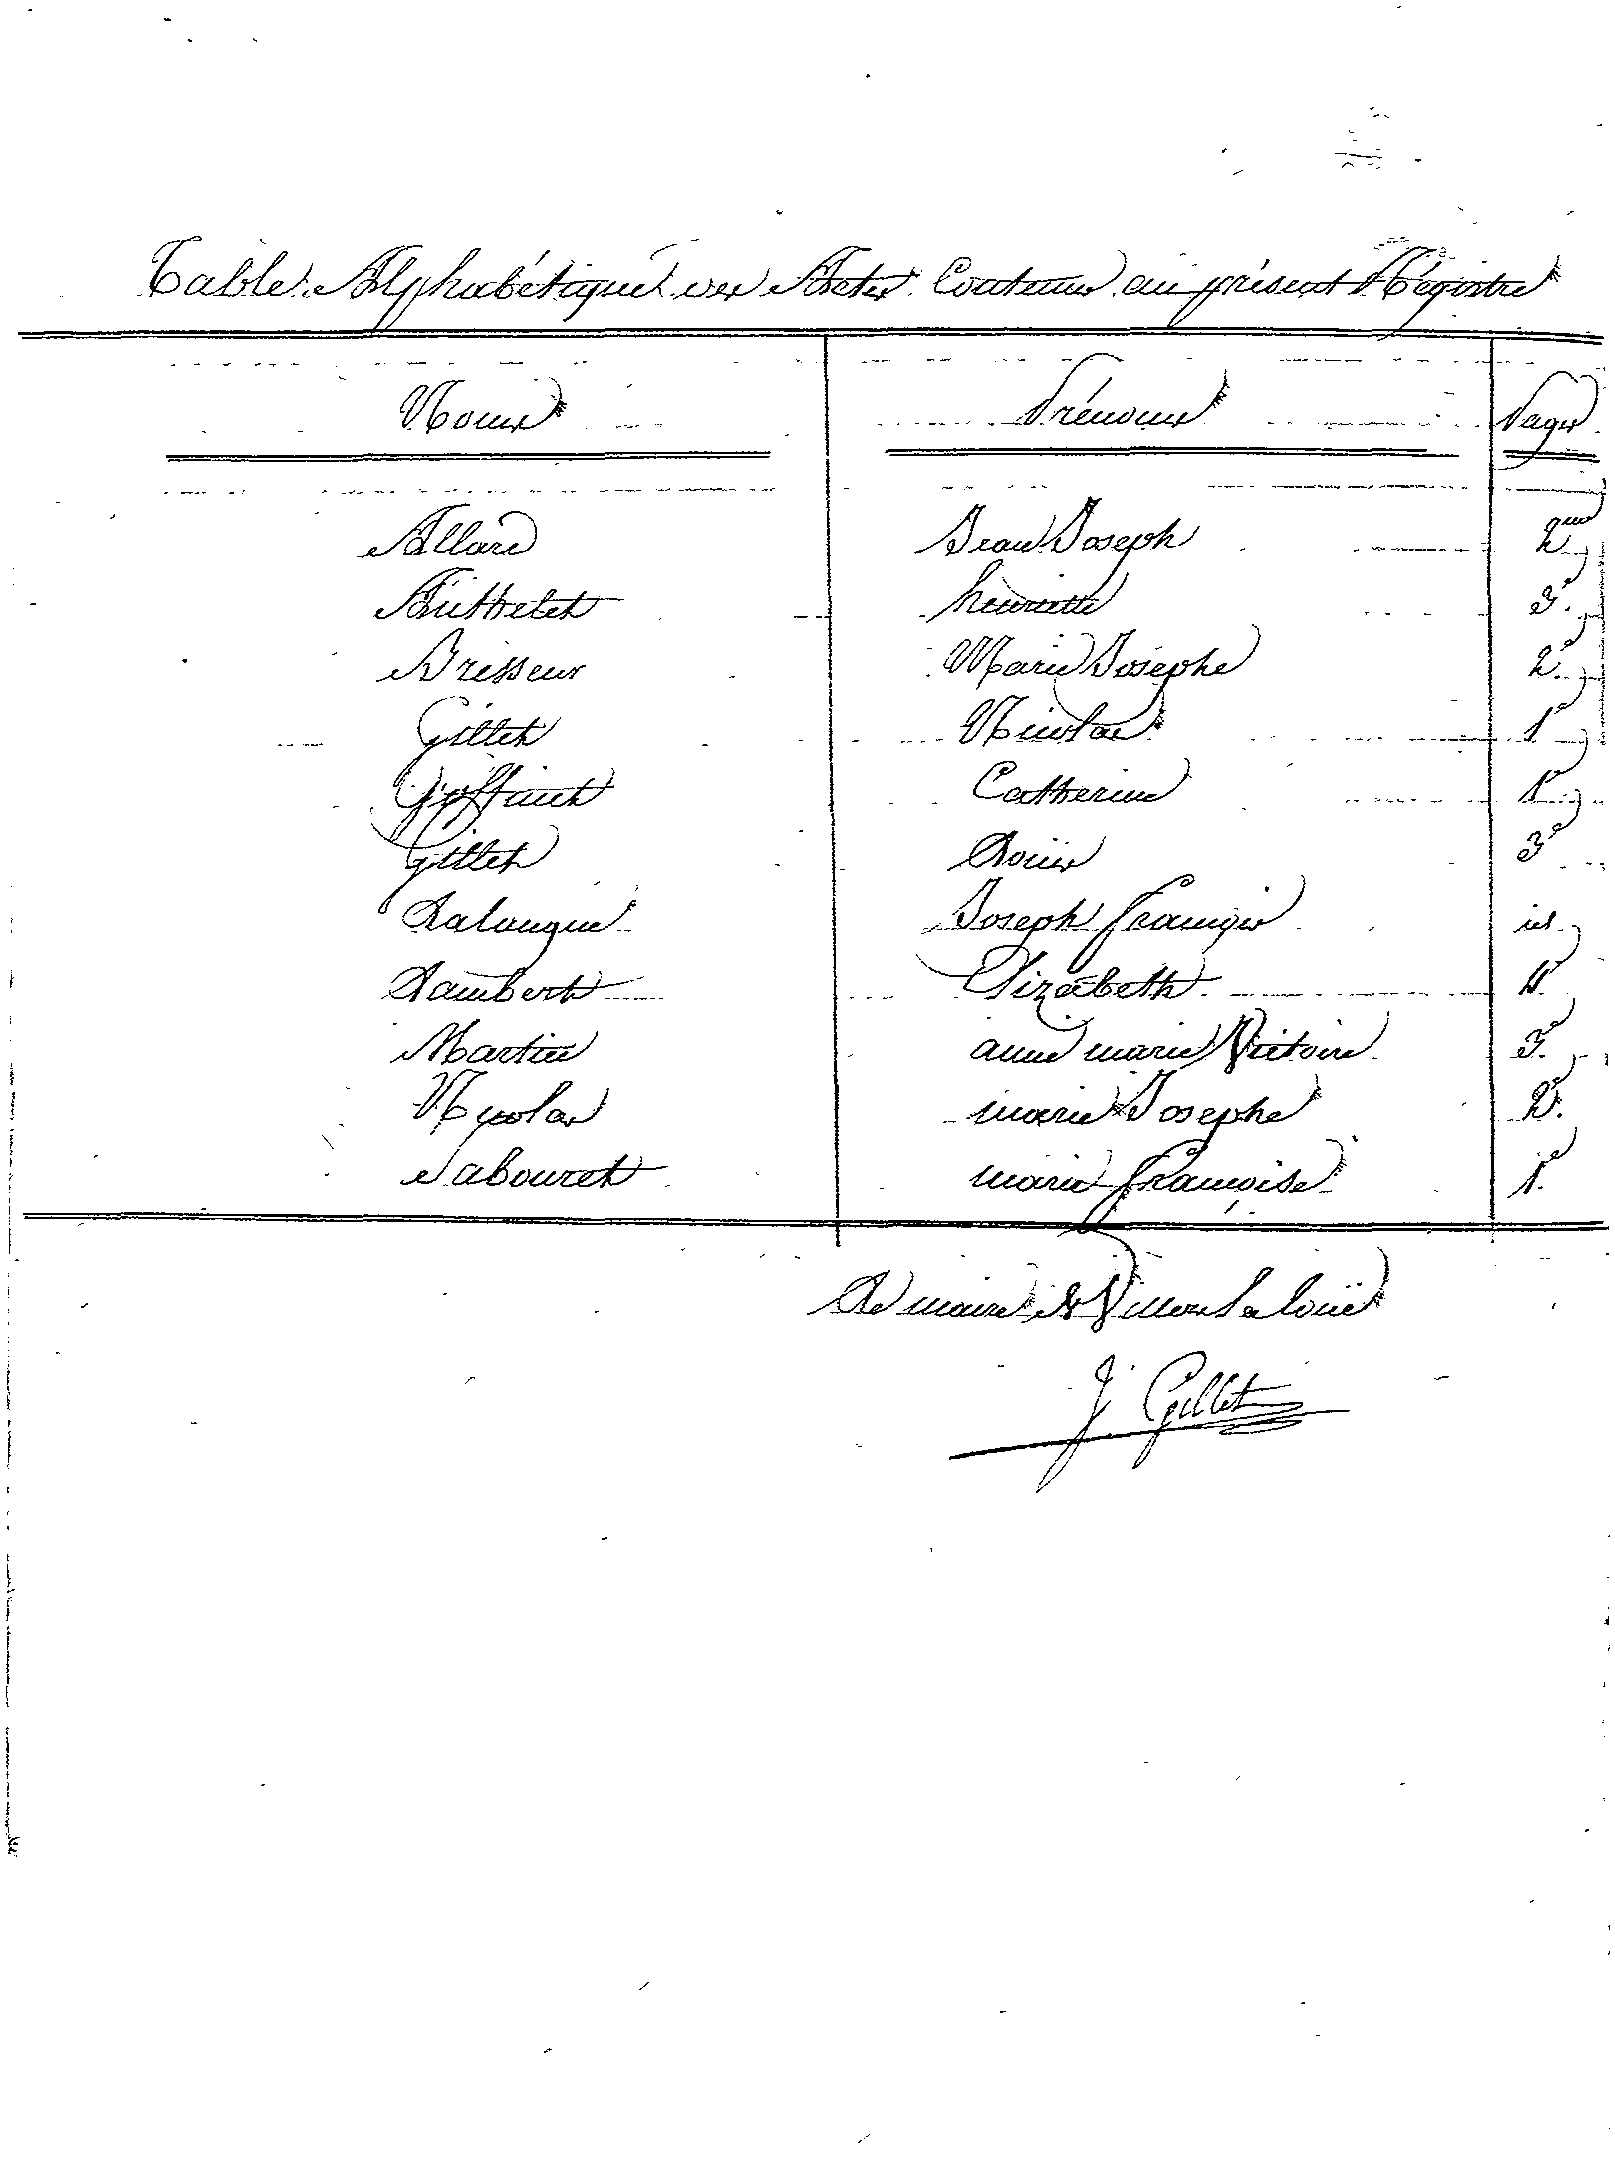 Table Alphabétique des Actes Contenus au présent Régistre
Noms Prénoms Pages
Allard Jean Joseph 2
henriette 3.
Brisseur Marie Josephe 2.
Gillet Nicolas 1
Goffinet Catherine 1
Gillet Louis 3
Lalangue Joseph François id.
Lambert Elizabeth 4
Martin anne marie Victoire 3.
Nycolas marie Josephe 2.
Sabouret marie françoise 1.
Le maire de
J. Gillet